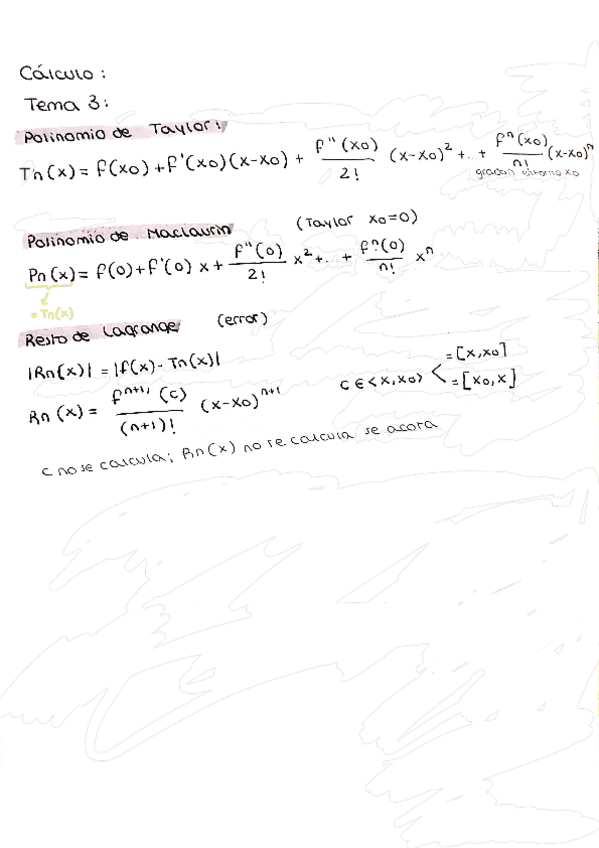 Cálculo:
Tema 3:
Polinomio de Taylor:
Tn(x) = f(x0) + f'(x0)(x-x0) + f''(x0)/2! (x-x0)² + ... + fⁿ(x0)/n! (x-x0)ⁿ
grado n entorno x0
Polinomio de Maclaurin (Taylor x0=0)
Pn(x) = f(0) + f'(0) x + f''(0)/2! x² + ... + fⁿ(0)/n! xⁿ
= Tn(x)
Resto de Lagrange (error)
|Rn(x)| = |f(x) - Tn(x)|
Rn(x) = fⁿ⁺¹(c)/(n+1)! (x-x0)ⁿ⁺¹ c ∈ <x,x0> = [x,x0]
= [x0,x]
c no se calcula; Rn(x) no se calcula se acota